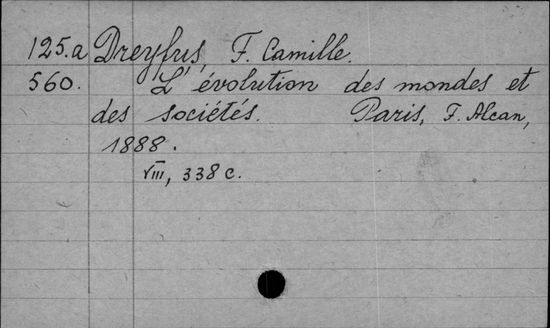 125.a Dreyfus, F. Camille.
560. L'évolution des mondes et
des sociétés. Paris, F. Alcan,
1888.
VIII, 338 c.